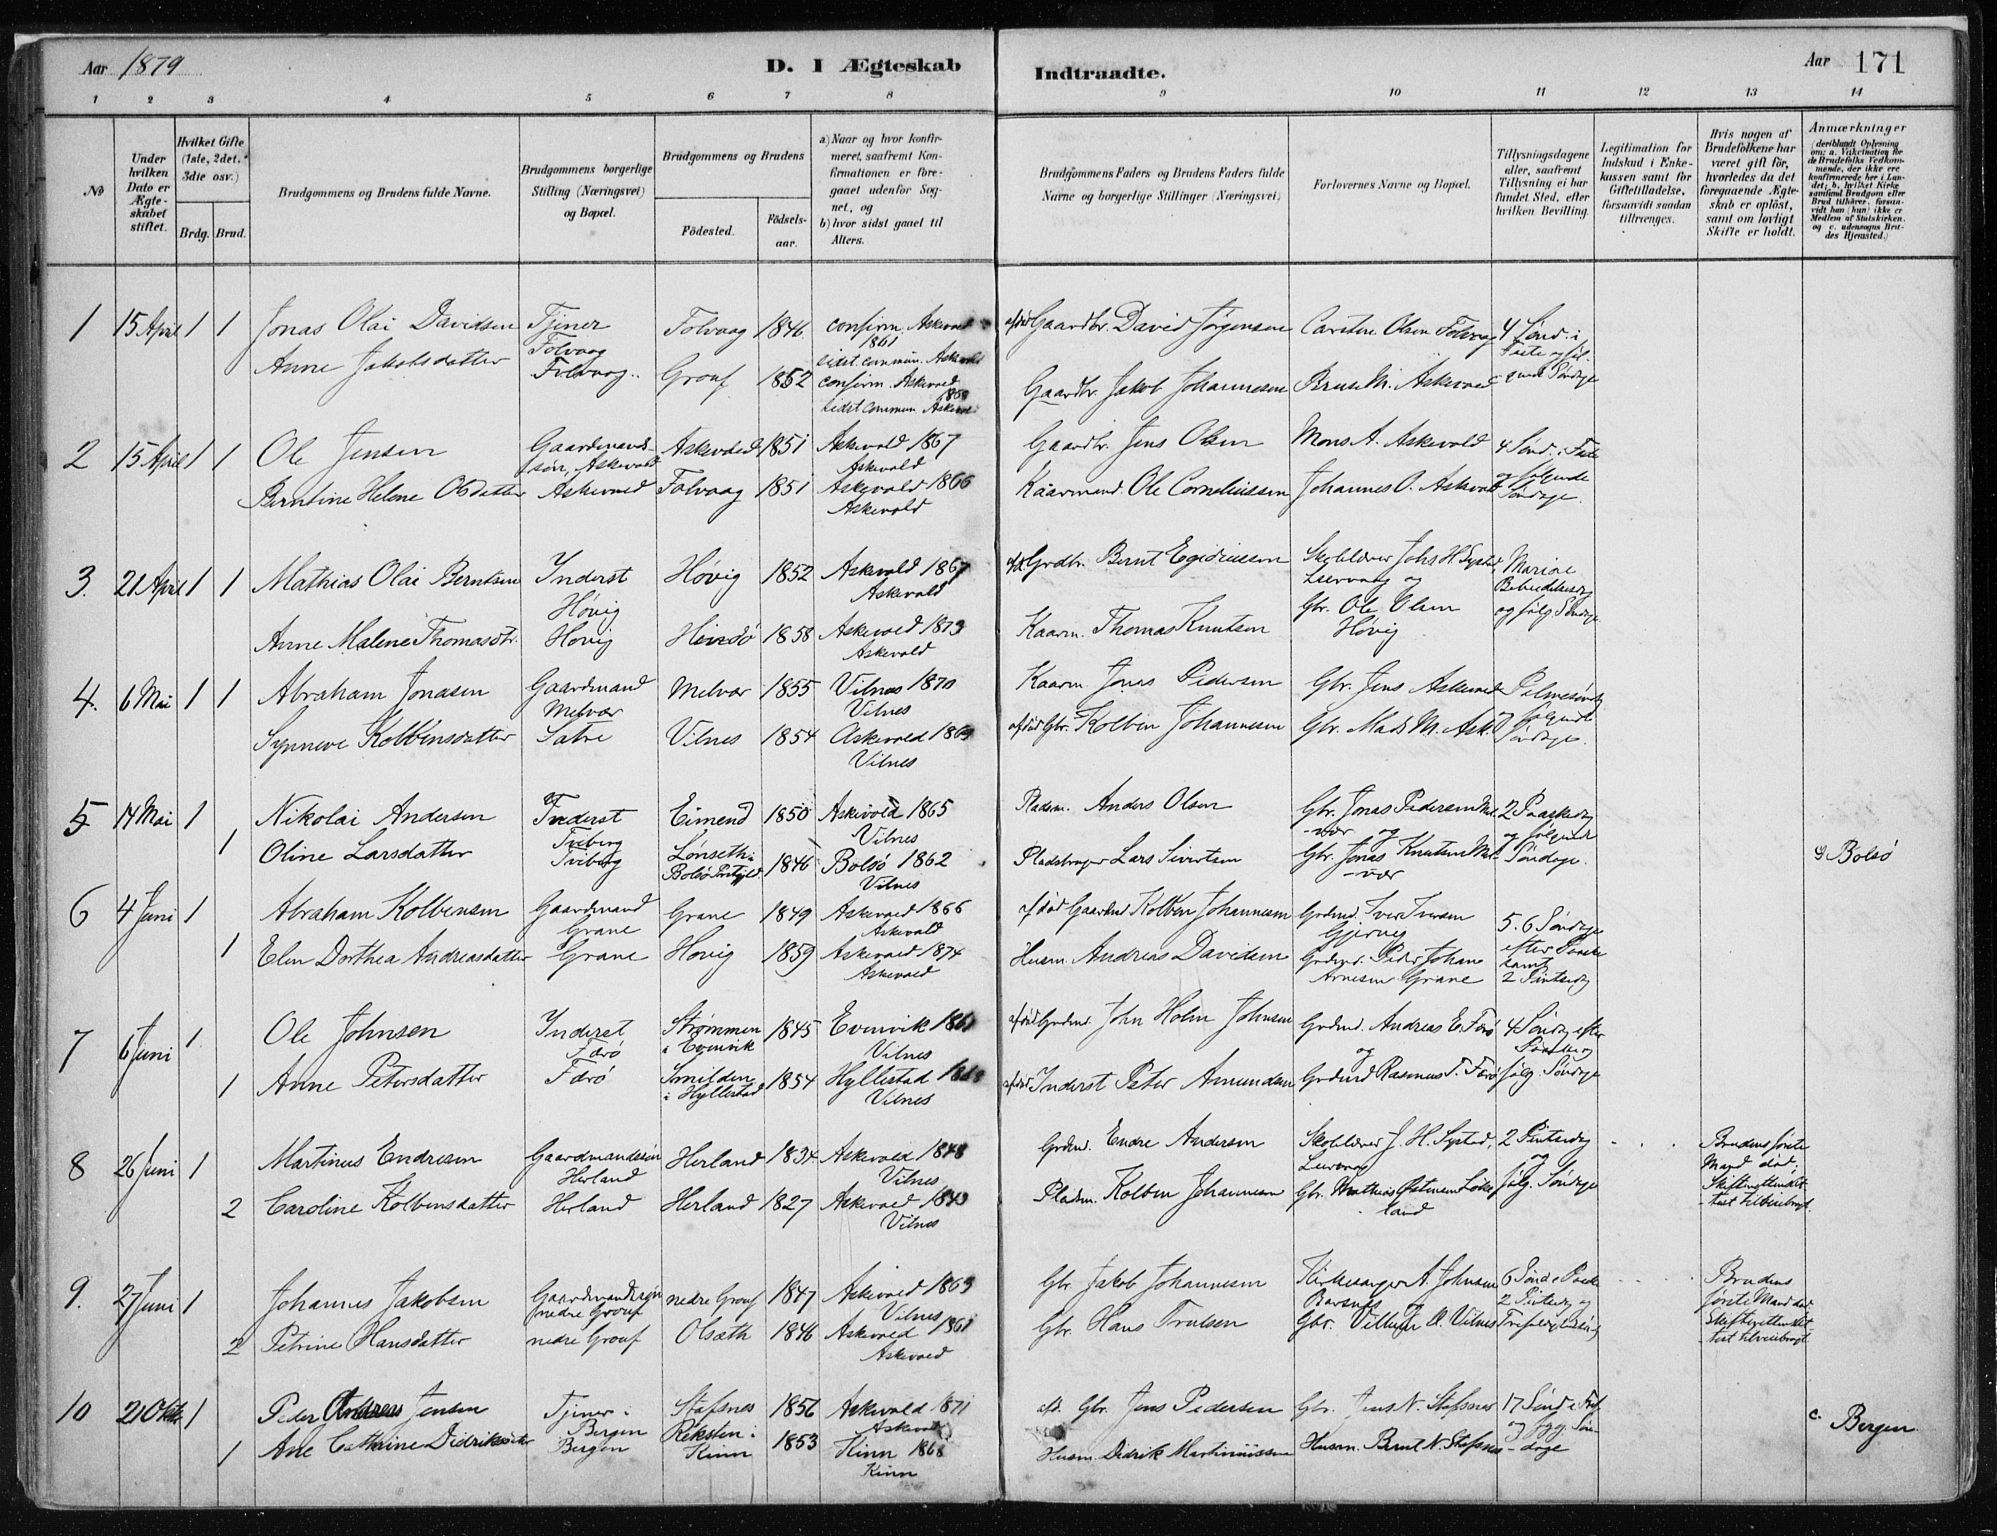 Aar 1879
D. I Ægteskab
Indtraadte.
Aar 171
1 2 3 4 5 6 7 8 9 10 11 12 13 14
No
Under hvilken Dato er Ægteskabet stiftet.
Hvilket Gifte (1ste, 2det, 3die osv.)
Brdg. Brud.
Brudgommens og Brudens fulde Navne.
Brudgommens borgerlige Stilling (Næringsvei) og Bopæl.
Brudgommens og Brudens
Födested.
Födsels-aar.
a) Naar og hvor konfirmeret, saafremt Konfirmationen er foregaaet udenfor Sognet, og
b) hvor sidst gaaet til Alters.
Brudgommens Faders og Brudens Faders fulde Navne og borgerlige Stillinger (Næringsvei)
Forlovernes Navne og Bopæl.
Tillysningsdagene eller, saafremt Tillysning ei har fundet Sted, efter hvilken Bevilling.
Legitimation for Indskud i Enkekassen samt for Giftetilladelse, forsaavidt saadan tiltrænges.
Hvis nogen af Brudefolkene har været gift för, hvorledes da det foregaaende Ægteskab er oplöst, samt om lovligt Skifte er holdt.
Anmærkninger (deriblandt Oplysning om: a. Vakcination for de Brudefolks Vedkommende, der ikke ere konfirmerede her i Landet; b. hvilket Kirkesamfund Brudgom eller Brud tilhörer, forsaavidt han (hun) ikke er Medlem af Statskirken, og c. udensogns Brudes Hjemsted.)
1 15 April 1 1 Jonas Olai Davidsen Tjener Folvaag Folvaag 1846 confirm. Askevold 1861 sidst commun. Askevold afdød Gaardbr. David Jørgensen Carsten Olsen Folvaag 4 Sønd. i Faste og følgende Søndage
Anne Jakobsdatter Folvaag Grouf 1852 confirm. Askevold sidst commun. Askevold Gaardbr. Jakob Johannesen M. Askevold
2 15 April 1 1 Ole Jensen Gaardmandssøn, Askevold Askevold 1851 Askevold 1867 Askevold Gaardbr. Jens Olsen Mons A. Askevold 4 Sønd. i Faste og følgende Søndage.
Berntine Helene Olsdatter Askevold Folvaag 1851 Askevold 1866 Askevold Kaarmand. Ole Corneliussen Johannes O. Askevold
3. 21 April 1 1 Mathias Olai Berntsen Inderst Høvig Høvig 1852 Askevold 1867 Askevold afd. Grdbr. Bernt Egidiussen Skolelærer Johs H. Systad, Leervaag og Mariæ Bebudelsesdag og følg. Søndage
Anne Malene Thomasdtr. Høvig 1858 Askevold 1873 Askevold Kaarm. Thomas Knutsen Gbr. Ole Olsen Høvig
4. 6 Mai 1 1 Abraham Jonasen Gaardmand Melvær Melvær 1855 Vilnes 1870 Vilnes Kaarm Jonas Pedersen Gbr. Jens Askevold Palmesøndag og følgende Søndage.
Synneve Kolbensdatter Sætre Vilnes 1854 Askevold 1869 Vilnes afdød Gbr. Kolben Johannesen Gbr. Mads M. Ask.
5 14 Mai 1 Nikolai Andersen Inderst Tviberg 1850 Askevold 1865 Vilnes Pladsm. Anders Olsen Gbr. Jonas Pedersen Melvær og 2 Paaskedag og følgende Søndage.
1 Oline Larsdatter Tviberg Lønseth i Bolsø Prstgjeld 1846 Bolsø 1862 Vilnes Pladsbruger Lars Sivertsen Gbr. Jonas Knutsen Melvær c) Bolsø
6 4 Juni 1 Abraham Kolbensen Gaardmand Grane Grane 1849 Askevold 1866 Askevold afdød Gaardmd Kolben Johannesen Grdmd. Iver Iversen Gjervig 5. 6 Søndage efter Paaske samt 2 Pintsedag
1 Elen Dorthea Andreasdatter Grane Høvig 1859 Askevold 1874 Askevold Husm. Andreas Davidsen Grdmd. Peder Johan Arnesen Grane
7 6 Juni 1 Ole Johnsen Inderst Færø Strømmen i Evenvik 1845 Evenvik 1861 Vilnes afdød Grdmd. John Holm Johnsen Grdmd. Andreas E. Færø og 4 Søndag efter Paaske og følg. Søndage
1 Anne Petersdatter Færø Smilden i Hyllestad 1854 Hyllestad Vilnes afdød Inderst Peter Amundsen Grdmd Rasmus T. Færø
8 26 Juni 1 Martinus Endresen Gaardmandssøn Herland Herland 1834 Askevold 1848 Vilnes Grdmd. Endre Andersen Skolelærer J. H. Systad, Leervaag 2 Pintsedag og følg. Søndage Brudens første Mand død; Skifterettens Attest tilveiebragt.
2 Caroline Kolbensdatter Herland Herland 1827 Askevold 1843 Vilnes Pladsm. Kolben Johannesen Gbr. Mathias Østensen Løkeland
9. 27 Juni 1 Johannes Jakobsen Gaardmandssøn nedre Grouf nedre Grouf 1847 Askevold 1863 Vilnes Gbr. Jakob Johannesen Kirkesanger A. Johnsen Barsnes 6 Sønd e Paaske 2 Pintsedag og Trefoldighedssøndag Brudens første Mand død Skifterettens Attest tilveiebragt
2 Petrine Hansdatter nedre Grouf Olsæth 1846 Askevold 1861 Askevold Gbr. Hans Trulsen Gbr. Villum A. Vilnes
10 21 Oktbr 1 Peder Andreas Jensen Tjener i Bergen Stafsnes 1856 Askevold 1871 Askevold afd. Gbr. Jens Pedersen Gbr. Jens N. Stafsnes 17 Sønd e Tref og flgg. Søndage
1 Ane Cathrine Didriksdatter Bergen Reksten i Kinn 1853 Kinn 1868 Kinn Husm. Didrik Martinussen Husm. Bernt N. Stafsnes c. Bergen